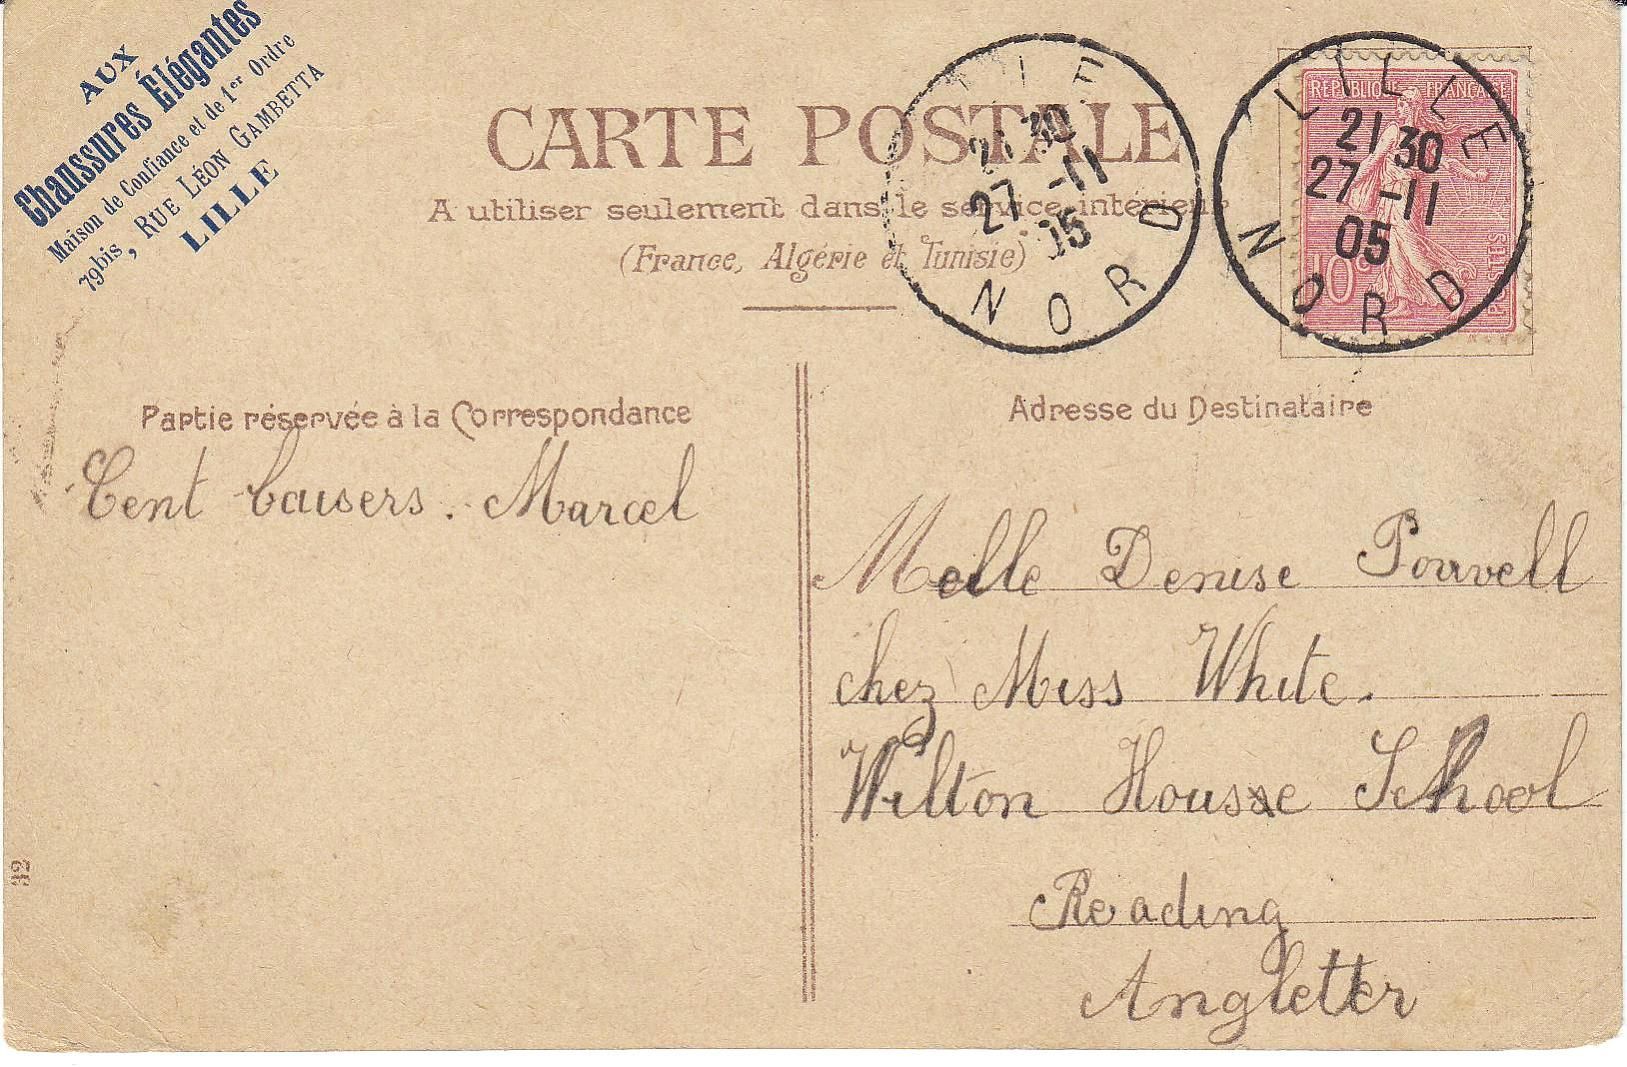 AUX
Chaussures Élégantes
Maison de Confiance et de 1er Ordre
79bis, RUE LÉON GAMBETTA
LILLE
CARTE POSTALE
A utiliser seulement dans le service intérieur
(France, Algérie et Tunisie)
LILLE
21 30
27 -11
05
NORD
LILLE
21 30
27 -11
05
NORD
RÉPUBLIQUE FRANÇAISE
10c
POSTES
Partie réservée à la Correspondance
Cent baisers. Marcel
Adresse du Destinataire
Melle Denise Pouvell
chez Miss White.
Wilton House School
Reading
Angleter
32